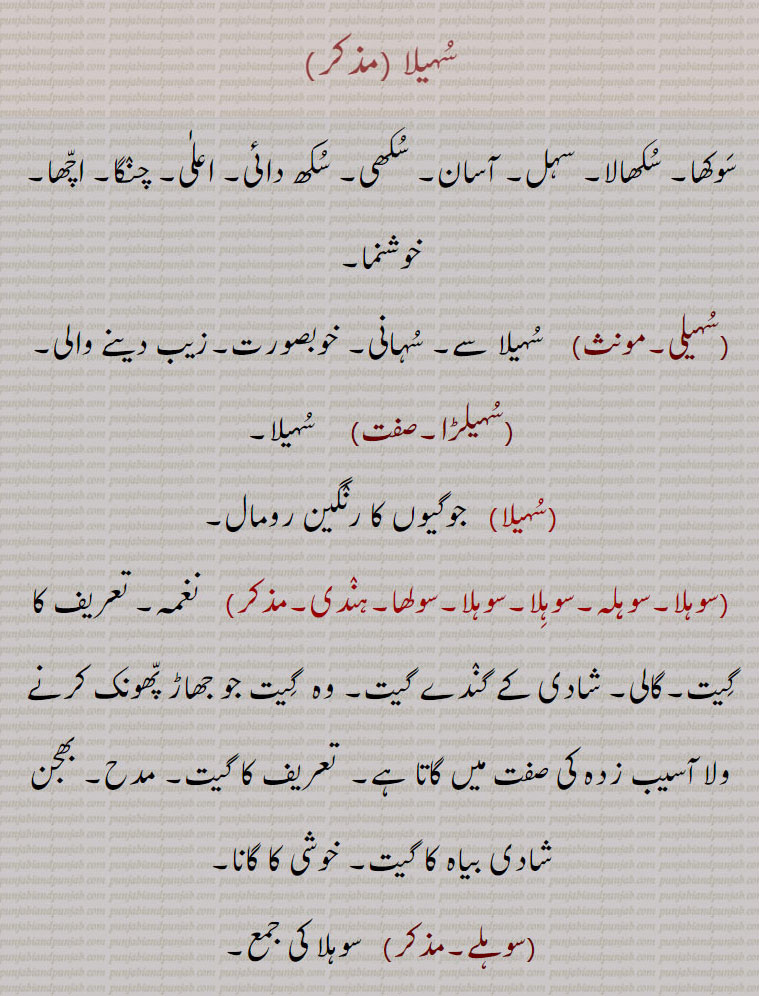 سُہیلا (مذکر)
سَوکھا۔ سُکھالا۔ سہل۔ آسان۔ سُکھی۔ سُکھ دائی۔ اعلیٰ۔ چنگا۔ اچّھا۔
خوشنما۔
(سُہیلی۔مونث) سُہیلا سے۔ سُہانی۔ خوبصورت۔ زیب دینے والی۔
(سُہیلڑا۔صفت) سُہیلا۔
(سُہیلا) جوگیوں کا رنگین رومال۔
(سوہلا۔سوہلہ۔سوہِلا۔سوہلا۔سولھا۔ہندی۔مذکر) نغمہ۔ تعریف کا
گِیت۔گالی۔ شادی کے گندے گیت۔ وہ گِیت جو جھاڑ پھّونک کرنے
ولا آسیب زدہ کی صفت میں گاتا ہے۔ تعریف کا گیت۔ مدح۔ بھجن
شادی بیاہ کا گیت۔ خوشی کا گانا۔
(سوہلے۔مذکر) سوہلا کی جمع۔
punjabiandpunjab.com